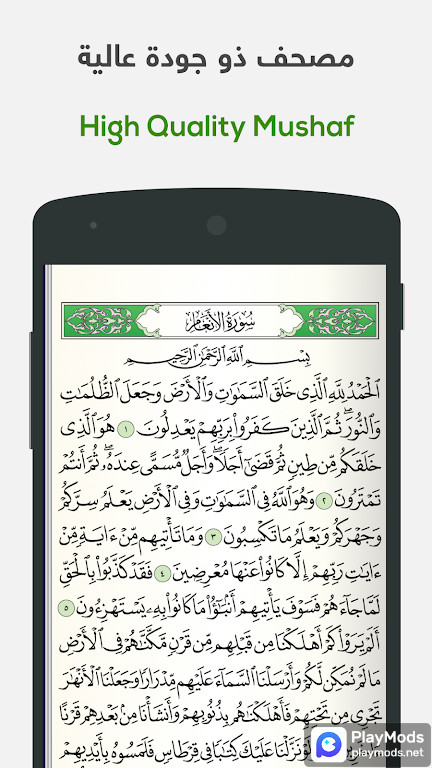 مصحف ذو جودة عالية
High Quality Mushaf
سُورَةُ الأَنْعَامِ
بِسْمِ ٱللَّهِ ٱلرَّحْمَٰنِ ٱلرَّحِيمِ
ٱلْحَمْدُ لِلَّهِ ٱلَّذِى خَلَقَ ٱلسَّمَٰوَٰتِ وَٱلْأَرْضَ وَجَعَلَ ٱلظُّلُمَٰتِ
وَٱلنُّورَ ۖ ثُمَّ ٱلَّذِينَ كَفَرُوا۟ بِرَبِّهِمْ يَعْدِلُونَ ١ هُوَ ٱلَّذِى
خَلَقَكُم مِّن طِينٍ ثُمَّ قَضَىٰٓ أَجَلًا ۖ وَأَجَلٌ مُّسَمًّى عِندَهُۥ ۖ ثُمَّ أَنتُمْ
تَمْتَرُونَ ٢ وَهُوَ ٱللَّهُ فِى ٱلسَّمَٰوَٰتِ وَفِى ٱلْأَرْضِ يَعْلَمُ سِرَّكُمْ
وَجَهْرَكُمْ وَيَعْلَمُ مَا تَكْسِبُونَ ٣ وَمَا تَأْتِيهِم مِّنْ ءَايَةٍ مِّنْ
ءَايَٰتِ رَبِّهِمْ إِلَّا كَانُوا۟ عَنْهَا مُعْرِضِينَ ٤ فَقَدْ كَذَّبُوا۟ بِٱلْحَقِّ
لَمَّا جَآءَهُمْ ۖ فَسَوْفَ يَأْتِيهِمْ أَنۢبَٰٓؤُا۟ مَا كَانُوا۟ بِهِۦ يَسْتَهْزِءُونَ ٥
أَلَمْ يَرَوْا۟ كَمْ أَهْلَكْنَا مِن قَبْلِهِم مِّن قَرْنٍ مَّكَّنَّٰهُمْ فِى ٱلْأَرْضِ
مَا لَمْ نُمَكِّن لَّكُمْ وَأَرْسَلْنَا ٱلسَّمَآءَ عَلَيْهِم مِّدْرَارًا وَجَعَلْنَا ٱلْأَنْهَٰرَ
تَجْرِى مِن تَحْتِهِمْ فَأَهْلَكْنَٰهُم بِذُنُوبِهِمْ وَأَنشَأْنَا مِنۢ بَعْدِهِمْ قَرْنًا
نَزَّلْنَا عَلَيْكَ كِتَٰبًا فِى قِرْطَاسٍ فَلَمَسُوهُ بِأَيْدِيهِمْ
PlayMods
playmods.net